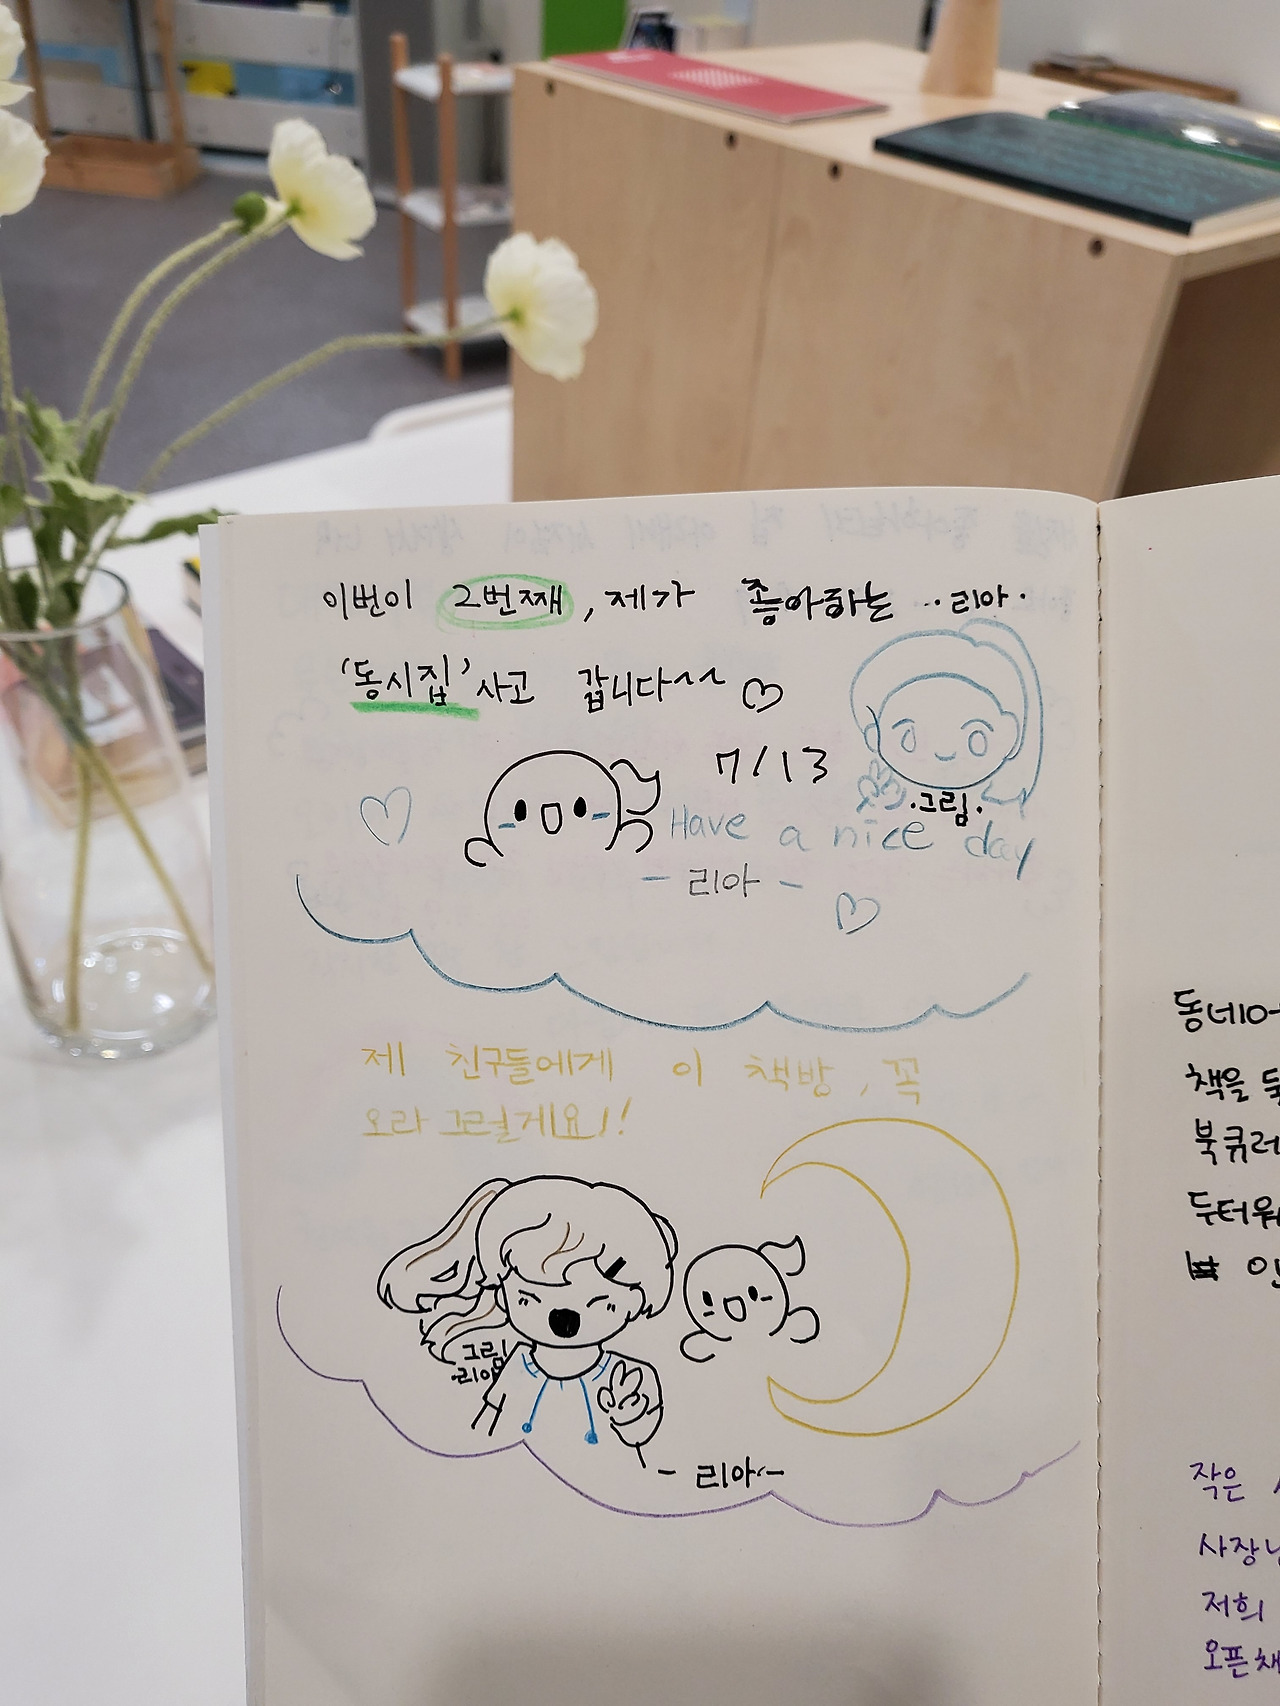 이번이 2번째, 제가 좋아하는 ··리아·
'동시집' 사고 갑니다~~ ♡
7/13
·그림·
Have a nice day
- 리아 -
제 친구들에게 이 책방, 꼭
오라 그럴게요!!
그림
·리아
- 리아 -
동네어
책을
북큐레
두터워
작은
사장님
저희
오픈채